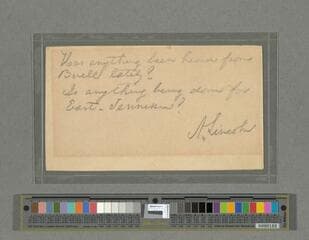 Has anything been heard from
Buell lately?
Is anything being done for
East-Tennessee?
A. Lincoln